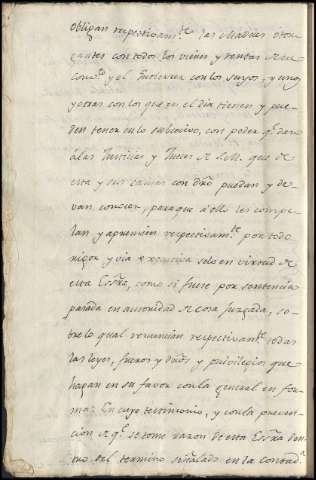 obligan respectivamte. las Madres otor-
gantes con todos los vienes y rentas de su
convto. y el Gutierrez con los suyos, y unos
y otros con los que en el dia tienen y pue-
den tener en lo subcesivo, con poder qe. dan
á las Justicias y Jueces de S.M. que de
esta y sus causas con dro. puedan y de-
van conocer, para que á ello les compe-
lan y apremien respectivamte. por todo
rigor y via executiva solo en virtud de
esta Essra. como si fuese por sentencia
pasada en autoridad de cosa juzgada, so-
bre lo qual renuncian respectivamte. todas
las leyes, fueros y dros. y privilegios que
hagan en su favor con la general en for-
ma: En cuyo testimonio, y con la preven-
cion de qe. se tome razon de esta Essra. den-
tro del termino señalado en la